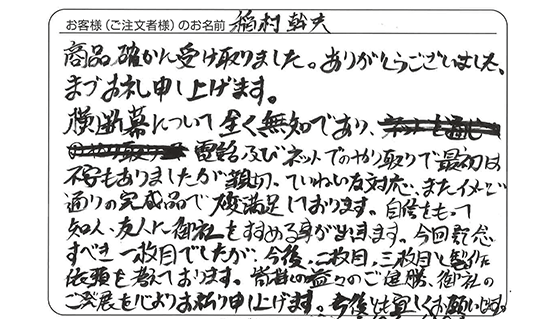 お客様（ご注文者様）のお名前 稲村幹夫
商品確かに受け取りました。ありがとうございました、
まづお礼申し上げます。
横断幕について全く無知であり、
電話及びネットでのやり取りで最初は
不安もありましたが親切、ていねいな対応、またイメージ
通りの完成品で大変満足しております。自信をもって
知人、友人に御社をすすめる事が出来ます。今回記念
すべき一枚目でしたが、今後、二枚目、三枚目と製作
依頼を考えております。皆様の益々のご健勝、御社の
ご発展を心よりお祈り申し上げます。今後とも宜しくお願いします。